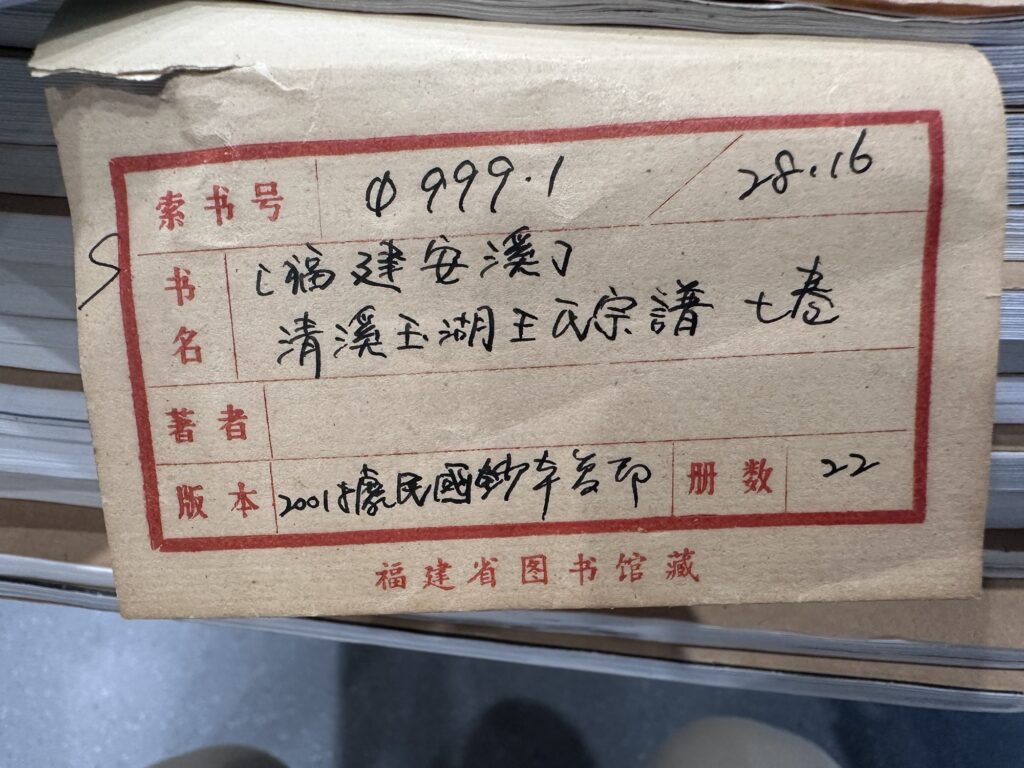 索书号 φ999.1 / 28.16
书名 [福建安溪]
清溪玉湖王氏宗譜 七卷
著者
版本 2001據民國鈔本复印 册数 22
福建省图书馆藏